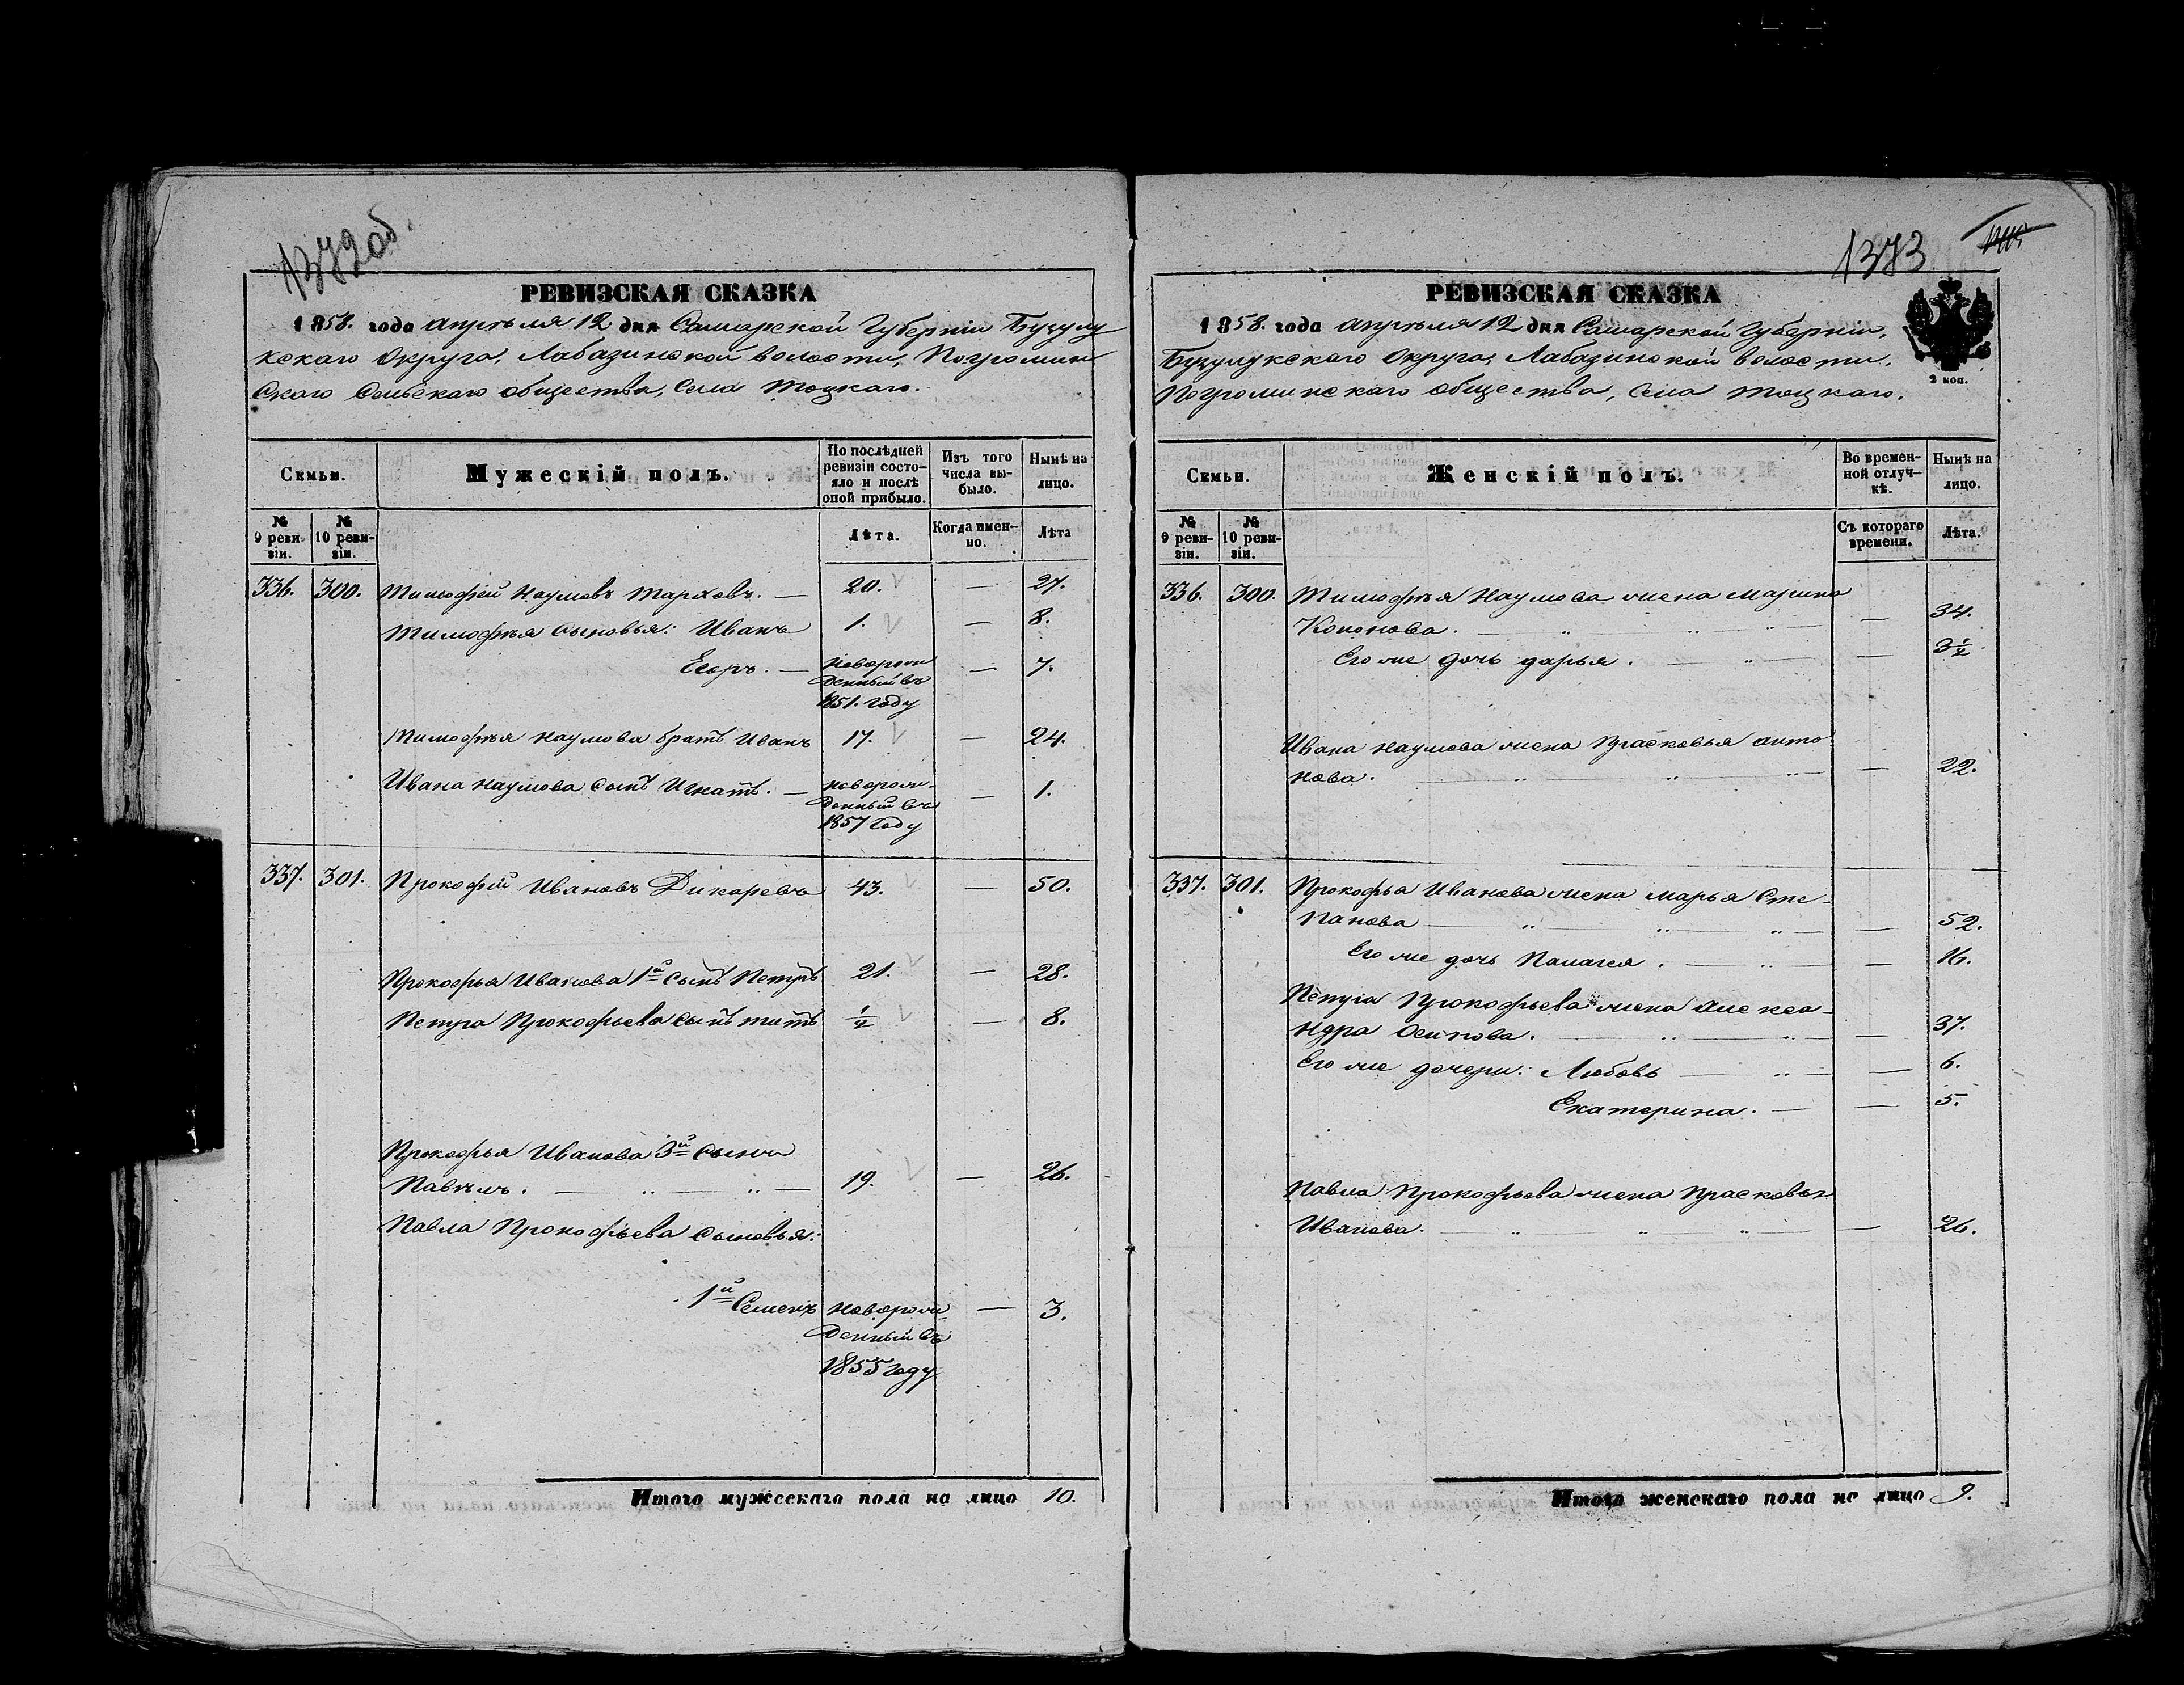 1372об.
РЕВИЗСКАЯ СКАЗКА
1858. года апрѣля 12 дня Самарской Губерніи Бузулу
кскаго Округа, Лабазинской волости, Погромин
скаго Сельскаго общества, Села Тоцкаго.
Семьи.
Мужескій полъ.
По послѣдней ревизіи состояло и послѣ оной прибыло.
Изъ того числа выбыло.
Нынѣ на лицо.
№ 9 ревизіи.
№ 10 ревизіи.
Лѣта.
Когда именно.
Лѣта
336. 300. Тимофей Наумовъ Тарховъ. — 20. — 27.
Тимофѣя сыновья: Иванъ 1. — 8.
Егоръ. — новорож
денный въ
1851. году — 7.
Тимофѣя Наумова братъ Иванъ 17. — 24.
Ивана Наумова сынъ Игнатъ. — новорож-
денный въ
1857 году — 1.
337. 301. Прокофій Ивановъ Дикаревъ 43. — 50.
Прокофья Иванова 1й сынъ Петръ 21. — 28.
Петра Прокофьева сынъ Титъ 1/2 — 8.
Прокофья Иванова 3й сынъ
Павѣлъ. — 19. — 26.
Павла Прокофьева сыновья:
1й Семенъ новорож
денный въ
1855 году — 3.
Итого мужескаго пола на лицо 10.
1373
РЕВИЗСКАЯ СКАЗКА
1858. года апрѣля 12 дня Самарской Губерніи,
Бузулукскаго Округа, Лабазинской волости.
Погроминскаго общества, села Тоцкаго.
2 коп.
Семьи.
Женскій полъ.
Во временной отлучкѣ.
Нынѣ на лицо.
№ 9 ревизіи.
№ 10 ревизіи.
Съ котораго времени.
Лѣта.
336. 300. Тимофѣя Наумова жена Марина
Кононова. — 34.
Его же дочь Дарья. — 3 1/2
Ивана Наумова жена Прасковья Анто
нова. — 22.
337. 301. Прокофья Иванова жена Марья Сте-
панова — 52.
Его же дочь Палагея. — 16.
Петра Прокофьева жена Алекса-
ндра Осипова. — 37.
Его же дочери: Любовь — 6.
Екатерина. — 5.
Павла Прокофьева жена Прасковья
Иванова. — 26.
Итого женскаго пола на лицо 9.